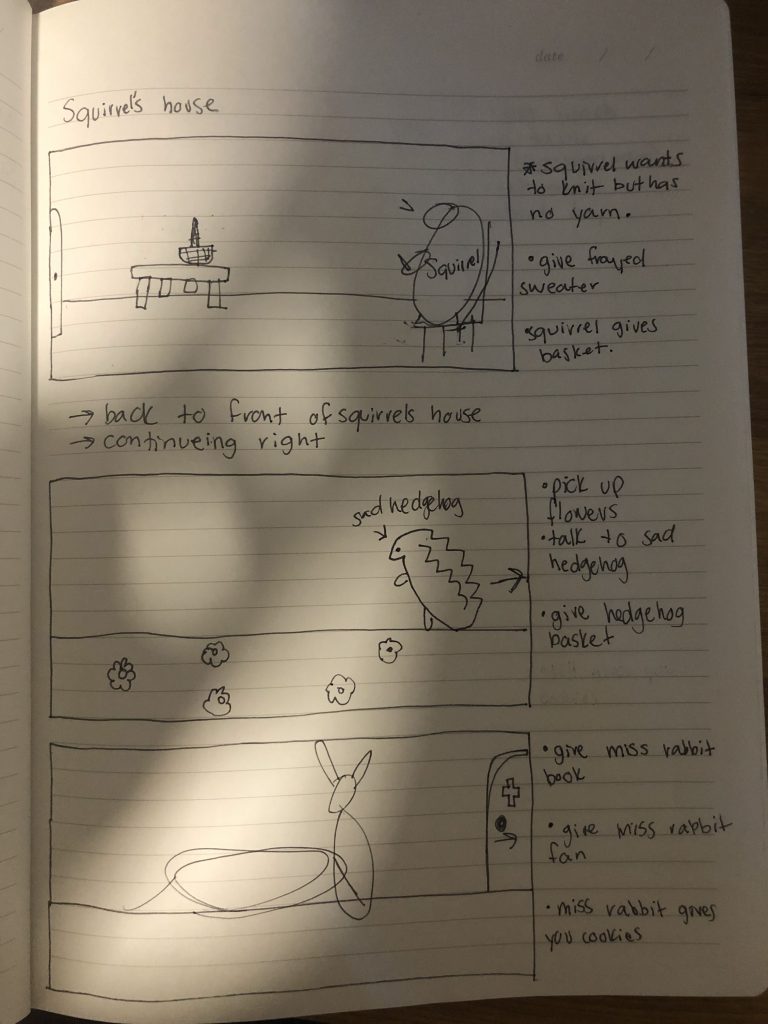 date / /
Squirrel's house
* squirrel wants
to knit but has
no yarn.
• give frayed
sweater
squirrel gives
basket.
Squirrel
→ back to front of squirrels house
→ continueing right
sad hedgehog
• pick up
flowers
• talk to sad
hedgehog
• give hedgehog
basket
• give miss rabbit
book
• give miss rabbit
fan
• miss rabbit gives
you cookies